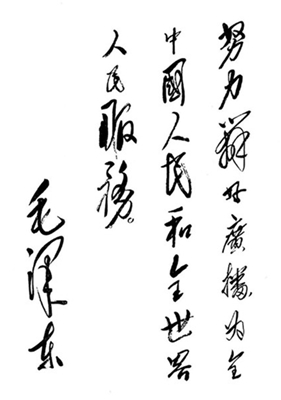 努力办好廣播为全
中國人民和全世界
人民服務。
毛泽东